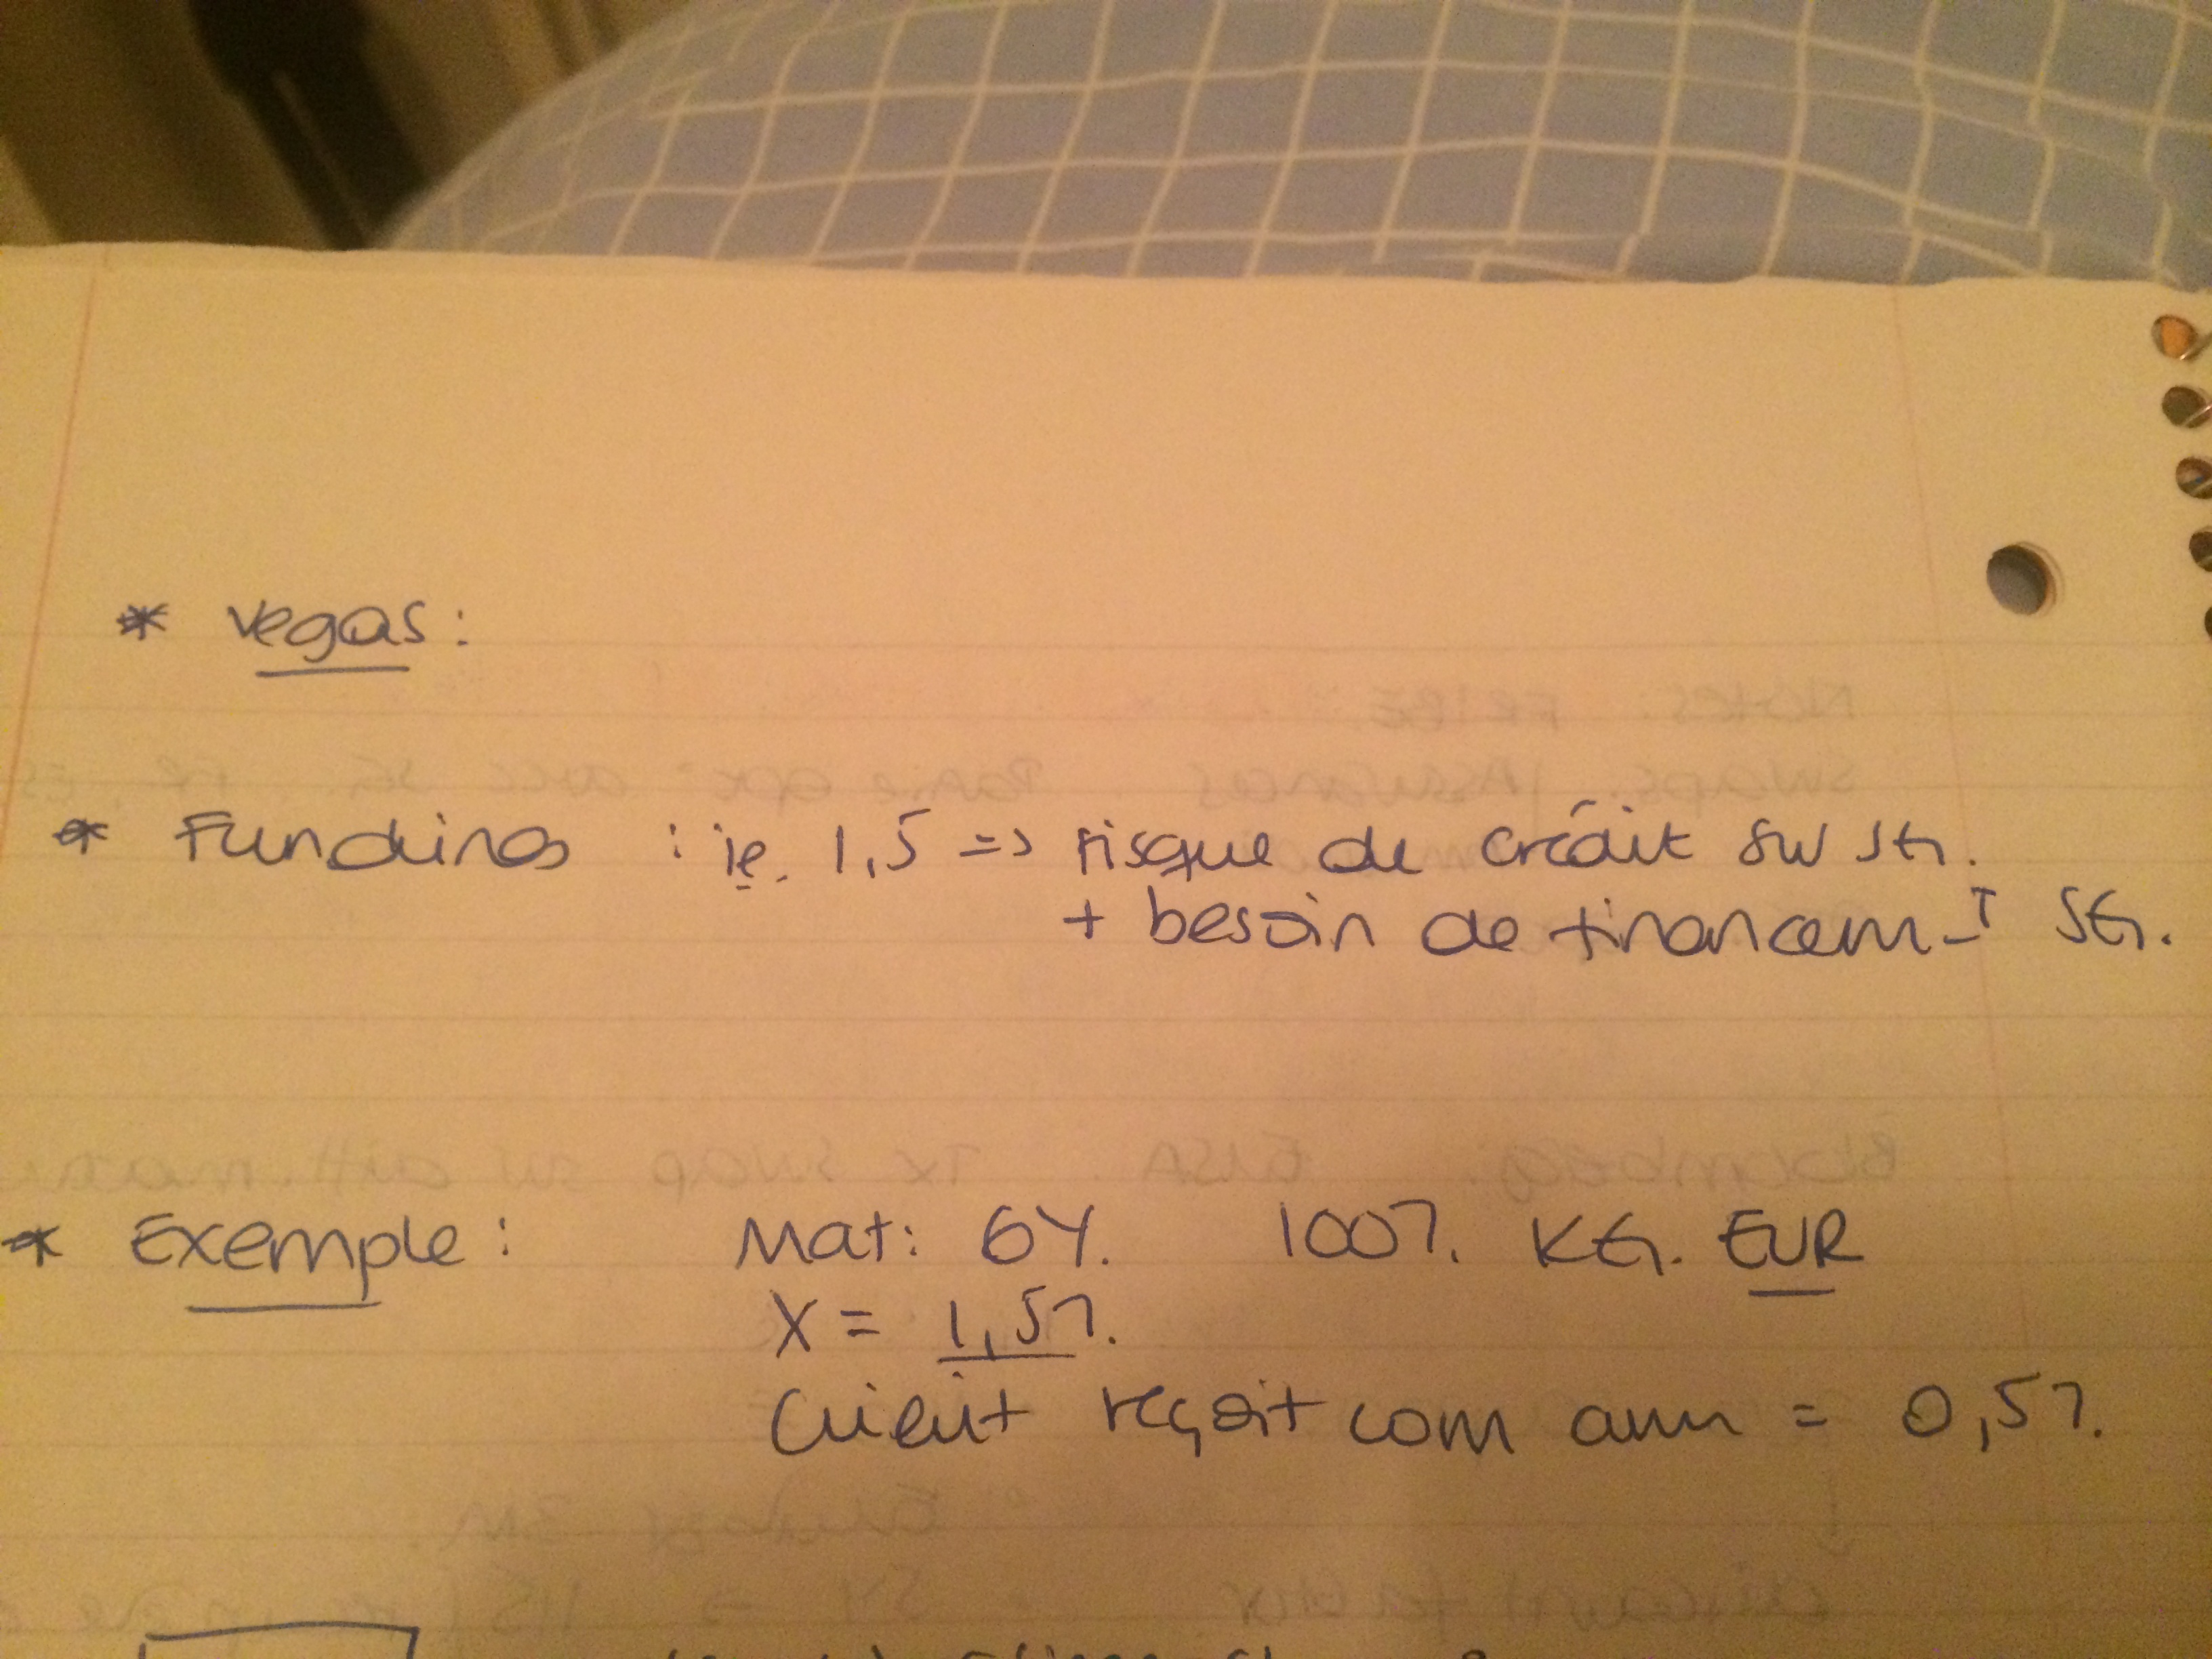 * Vegas :
* Funding : ie. 1,5 => risque de crédit sur SG.
+ besoin de financem-t SG.
* Exemple : Mat: 6Y. 100%. KG. EUR
X = 1,5%.
Client reçoit com ann = 0,5%.